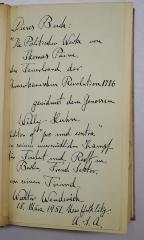 Dieses Buch:
"Die Politischen Werke von
Thomas Paine
der
Amerikanischen Revolution 1776
gewidmet dem Genossen
Willy Huhn
Editor of "pro und contra"
in seinem unermüdlichen Kampf
für Freiheit und Recht im
Berlin Sektor
von seinem Freund,
Walter
18. März 1951. New York City.
U.S.A.